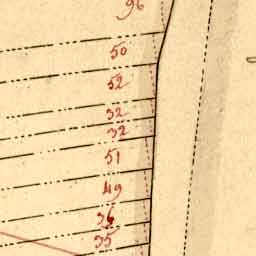 96
50
52
32
32
51
49
36
35